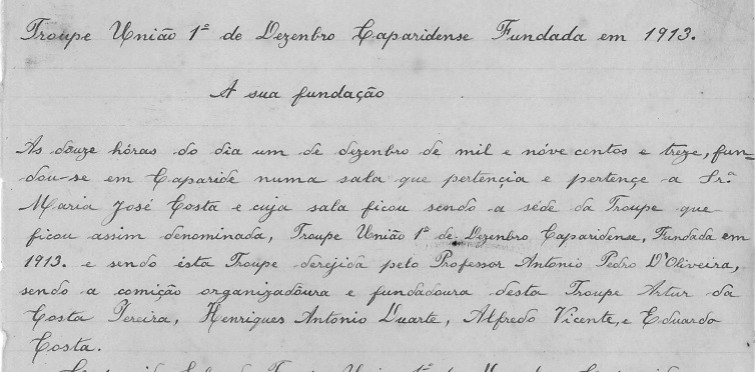 Troupe União 1º de Dezenbro Caparidense Fundada em 1913.
A sua fundação
As douze hóras do dia um de dezenbro de mil e nóve centos e treze, fun=
dou-se em Caparide numa sala que pertençia e pertençe a Srª
Maria José Costa e cuja sala ficou sendo a séde da Troupe que
ficou assim denominada, Troupe União 1º de Dezenbro Caparidense, Fundada em
1913. e sendo ésta Troupe derejida pelo Professor Antonio Pedro D'Oliveira,
sendo a comição organizadoura e fundadoura desta Troupe Artur da
Costa Pereira, Henriques Antonio Duarte, Alfredo Vicente, e Eduardo
Costa.